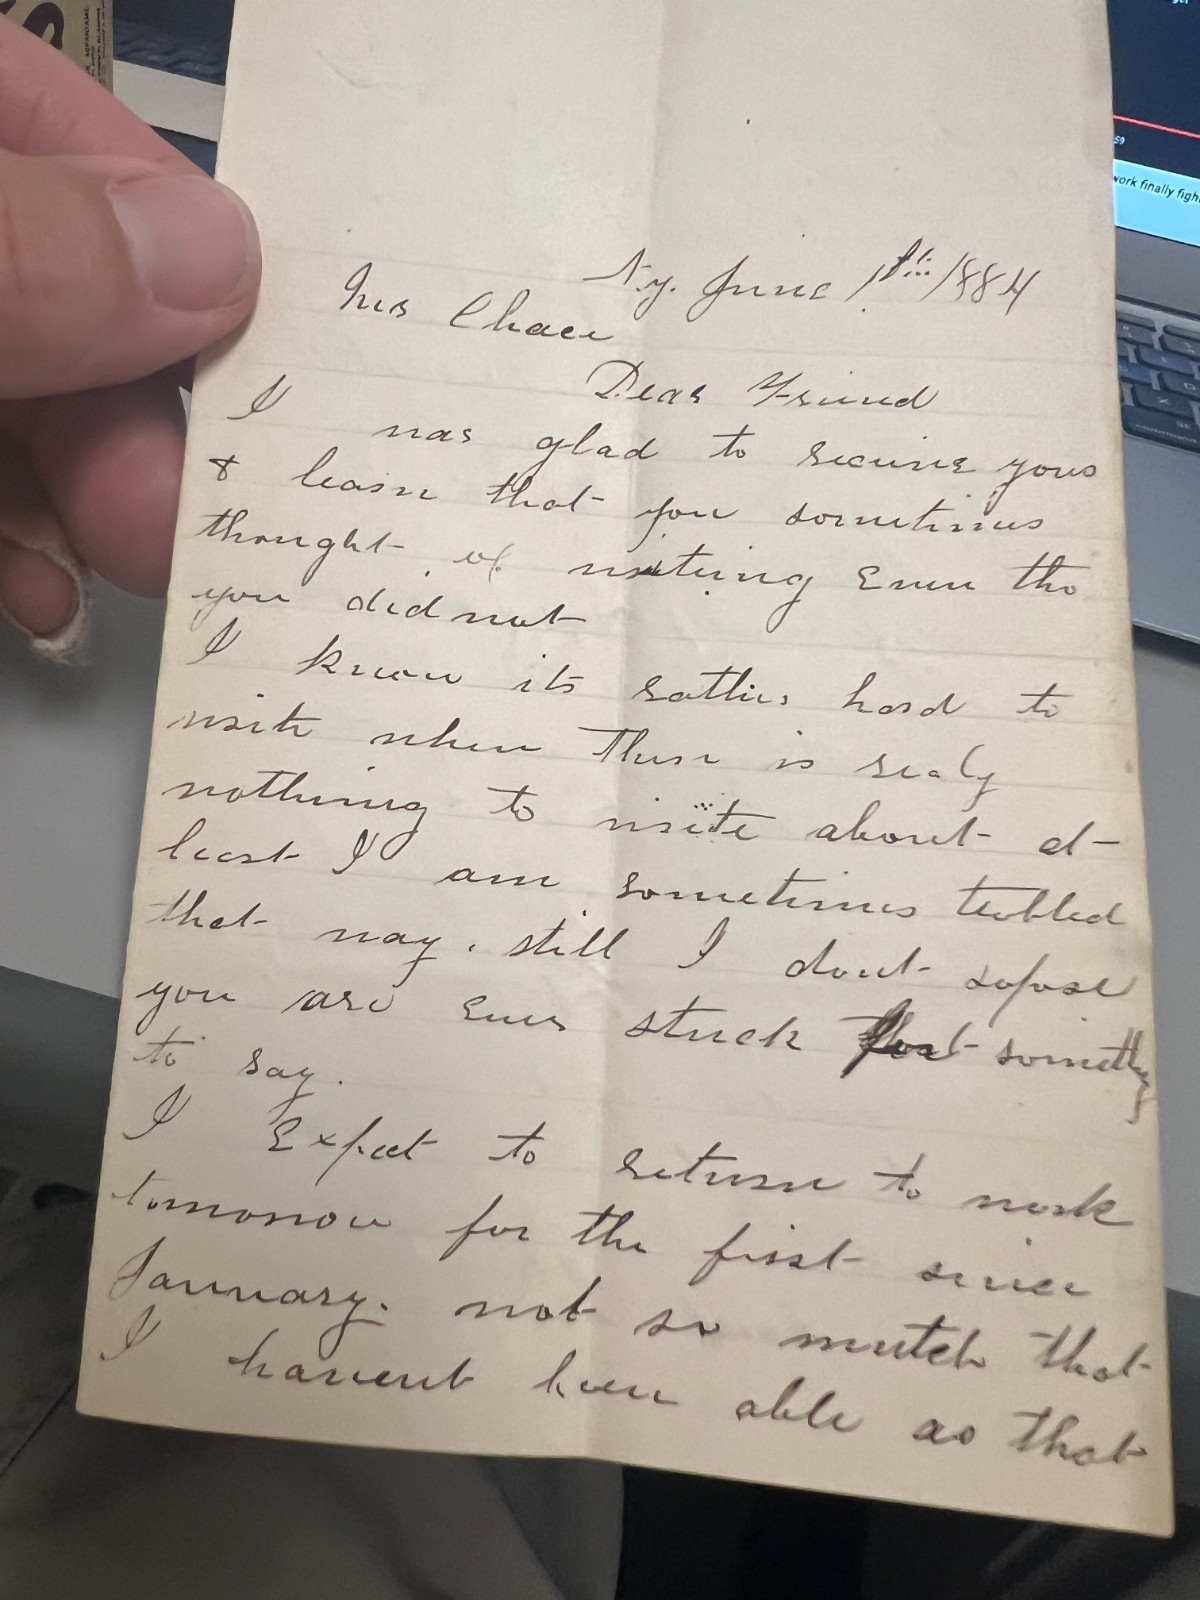 N.y. June 1st 1884
Mrs Chace
Dear Friend
I was glad to recieve yous
& learn that you sometimes
thought of writeing Even tho
you did not
I know its rather hard to
write when There is realy
nothing to write about at
least I am sometimes trobled
that way. still I dont sopose
you are Ever stuck for something
to say.
I Expect to return to work
tomorrow for the first since
January. not so mutch that
I havent been able as that
59
work finally figh